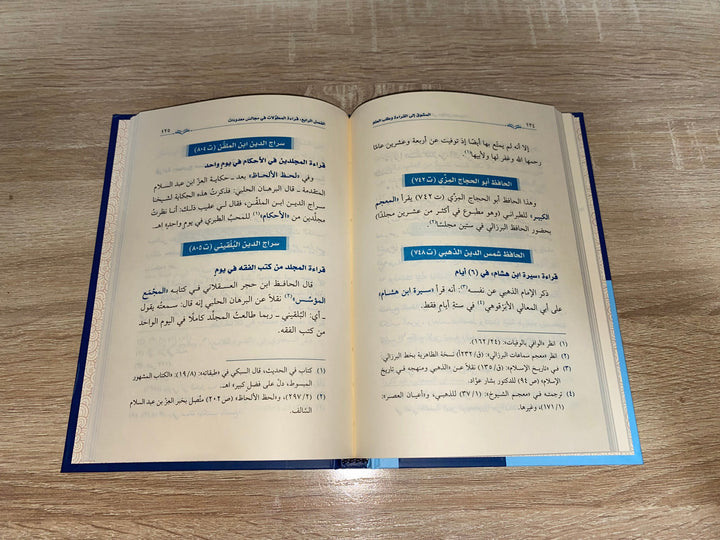 ١٢٤
المشوق إلى القراءة وطلب العلم
إلا أنه لم يمتَّع بها أيضًا إذ توفيت عن أربعة وعشرين عامًا
رحمها الله وغفر لها ولأبيها(١).
الحافظ أبو الحجاج المِزِّي (ت ٧٤٢)
وهذا الحافظ أبو الحجاج المِزِّي (ت ٧٤٢) يقرأ: «المعجم
الكبير» للطبراني (وهو مطبوع في أكثر من عشرين مجلدًا)
بحضور الحافظ البرزالي في ستين مجلسًا(٢).
الحافظ شمس الدين الذهبي (ت ٧٤٨)
قراءة «سيرة ابن هشام» في (٦) أيام
ذكر الإمام الذهبي عن نفسه(٣): أنه قرأ «سيرة ابن هشام»
على أبي المعالي الأبَرْقوهي(٤) في ستةِ أيامٍ فقط.
(١) انظر «الوافي بالوفيات»: (١٦٢/٢٤).
(٢) انظر «معجم سماعات البرزالي»: (ق/٢٣٢أ) نسخة الظاهرية بخط البرزالي.
(٣) في «تاريخ الإسلام»: (ق/١٣٥) نقلًا عن «الذهبي ومنهجه في تاريخ
الإسلام» (ص ٩٤) للدكتور بشار عوّاد.
(٤) ترجمته في «معجم الشيوخ»: (٣٧/١) للذهبي، و«أعيان العصر»:
(١٧١/١)، وغيرها.
الفصل الرابع: قراءة المطوّلات في مجالس معدودات
١٢٥
سراج الدين ابن الملقّن (ت ٨٠٤)
قراءة المجلدين في الأحكام في يوم واحد
وفي «لحظ الألحاظ» بعد ـ حكاية العزّ ابن عبد السلام
المتقدمة ـ قال البرهان الحلبي: فذكرتُ هذه الحكاية لشيخنا
سراج الدين ابن الملقّن، فقال لي عقيب ذلك: أنا نظرتُ
مجلّدين من «الأحكام»(١) للمحبِّ الطبري في يومٍ واحدٍ» اهـ.
سراج الدين البُلْقيني (ت ٨٠٥)
قراءة المجلد من كتب الفقه في يوم
قال الحافظ ابن حجر العسقلاني في كتابه «المجْمَع
المؤسّس»(٢) نقلًا عن البرهان الحلبي إنه قال: سمعتُه يقول
ـ أي: البُلقيني ـ ربما طالعتُ المجلّد كاملًا في اليوم الواحد
من كتب الفقه.
(١) كتاب في الحديث، قال السبكي في «طبقاته»: (١٩/٨): «الكتاب المشهور
المبسوط، دلّ على فضلٍ كبير» اهـ.
(٢) (٢٩٧/٢)، و«لحظ الألحاظ» (ص ٢٠٢) متّصل بخبر العزّ بن عبد السلام
السّالف.